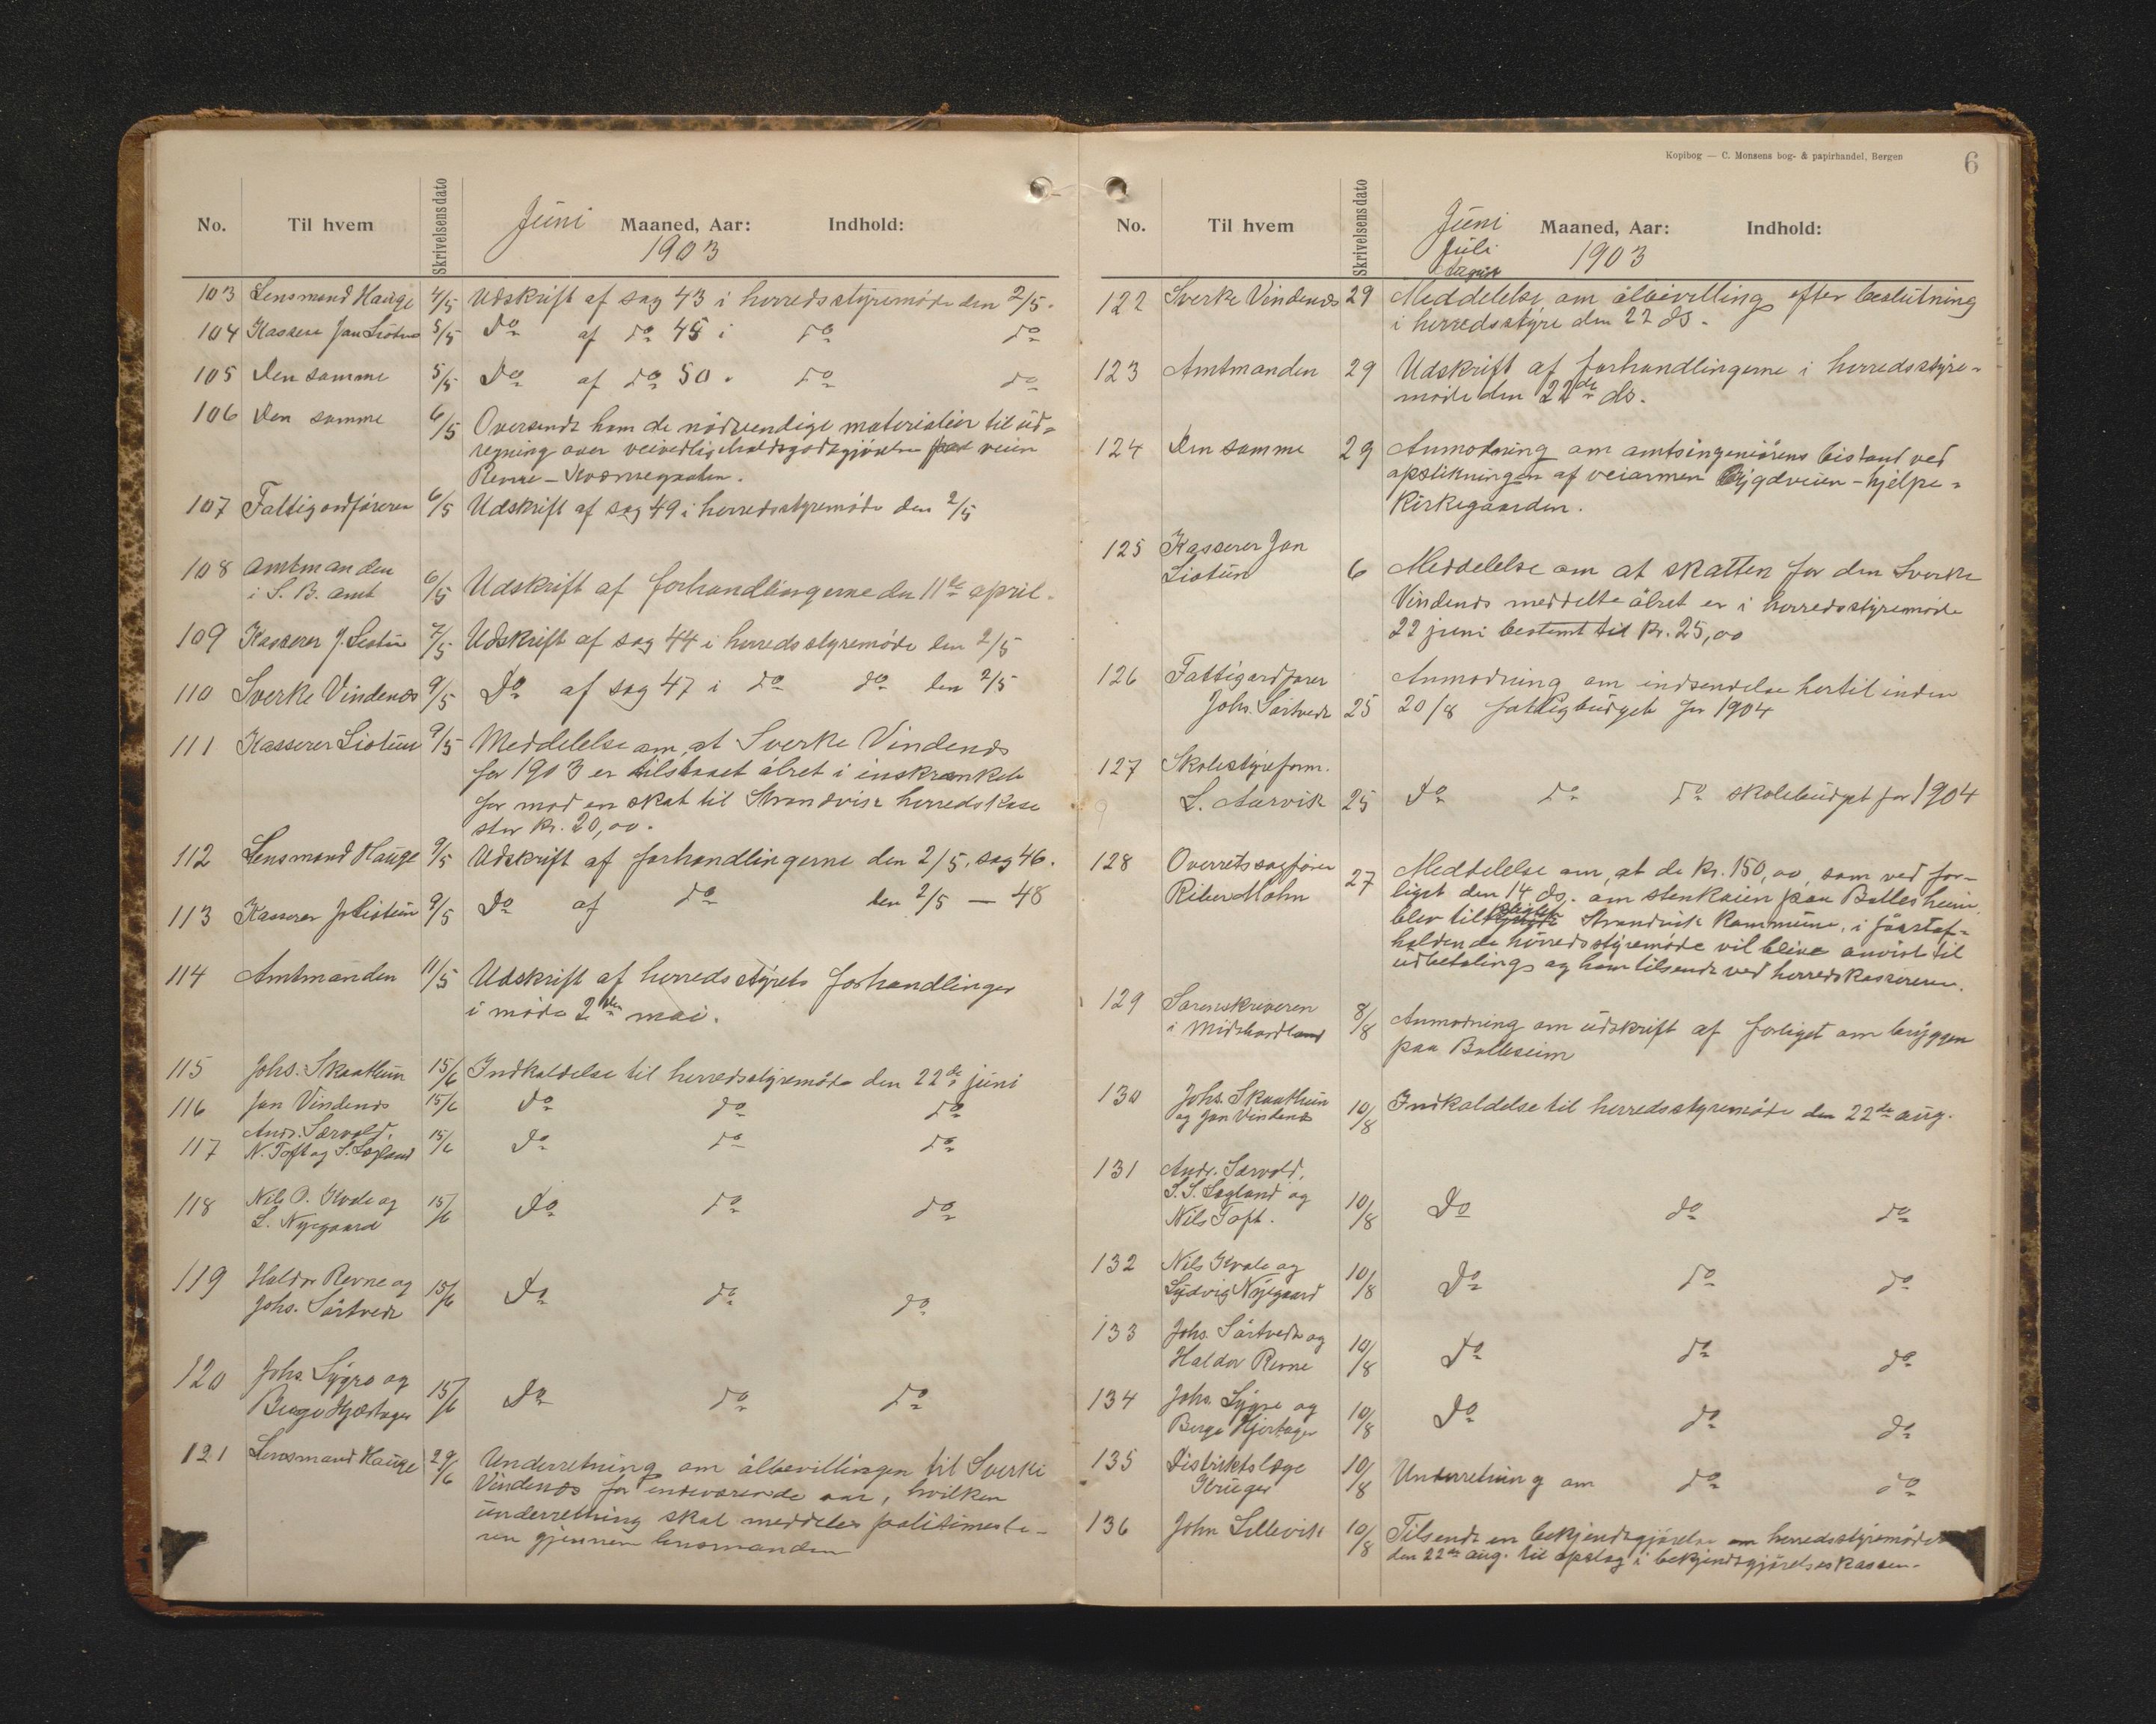 No. Til hvem Skrivelsensdato Juni Maaned, Aar: Indhold:
1903
103 Lensmand Hauge 4/5 Udskrift af sag 43 i herredsstyremøde den 2/5.
104 Kasserer Jan Liøtun 5/5 Do af do 45 i do do
105 Den samme 5/5 Do af do 50. do do
106 Den samme 6/5 Oversendt ham de nødvendige materialier til ud-
regning over veivedligeholdsgodtgjørelse paa veien
Revne -
107 Fattigordføreren 6/5 Udskrift af sag 49 i herredsstyremøde den 2/5
108 Amtmanden
i S. B. amt 6/5 Udskrift af forhandlingerne den 11te april.
109 Kasserer J. Liøtun 7/5 Udskrift af sag 44 i herredsstyremøde den 2/5
110 Sverke Vindenes 9/5 Do af sag 47 i do do den 2/5
111 Kasserer Liøtun 9/5 Meddelelse om, at Sverke Vindenes
for 1903 er tilstaaet ølret i inskrænket
for mod en skat til Strandvik herredskase
stor kr. 20,00.
112 Lensmand Hauge 9/5 Udskrift af forhandlingerne den 2/5, sag 46.
113 Kasserer J. Liøtun 9/5 Do af do den 2/5 — 48
114 Amtmanden 11/5 Udskrift af herredsstyrets forhandlinger
i møde 2den mai.
115 Johs. Skaathun 15/6 Indkaldelse til herredsstyremøde den 22de juni
116 Jan Vindenes 15/6 Do do do
Andr. Særvold,
117 N. Toft og S. Søgland 15/6 Do do do
118 Nils O. Kvale og
L. Nygaard 15/6 Do do do
119 Haldor Revne og
Johs. Sørtvedt 15/6 Do do do
120 Johs. Lygre og
Berge Hjortager 15/6 Do do do
121 Lensmand Hauge 29/6 Underretning om ølbevillingen til Sverke
Vindenes for indeværende aar, hvilken
underretning skal meddeles politimeste-
ren gjennem lensmanden
Kopibog — C. Monsens bog- & papirhandel, Bergen 6
No. Til hvem Skrivelsensdato Juni Maaned, Aar: Indhold:
Juli 1903
August
122 Sverke Vindenes 29 Meddelelse om ølbevilling efter beslutning
i herredsstyre den 22 ds.
123 Amtmanden 29 Udskrift af forhandlingerne i herredsstyre-
møde den 22de ds.
124 Den samme 29 Anmodning om amtsingeniørens bistand ved
opstikningen af veiarmen Bygdveien - hjelpe-
kirkegaarden.
125 Kasserer Jan
Liøtun 6 Meddelelse om at skatten for den Sverke
Vindenes meddelte ølret er i herredsstyremøde
22 juni bestemt til kr. 25,00
126 Fattigordfører Anmodning om indsendelse hertil inden
Johs. Sørtvedt 25 20/8 fattigbudget for 1904
127 Skolestyreform.
L. Aarvik 25 Do do do skolebudget for 1904
128 Overretssagfører
Riber Mohn 27 Meddelelse om, at de kr. 150,00, som ved for-
liget den 14 ds. om stenkaien paa Bollesheim
blev tilpligtet Strandvik kommune, i først af-
holdende herredsstyremøde vil blive anvist til
udbetaling og ham tilsendt ved herredskassereren.
129 Sorenskriveren
i Midthordland 8/8 Anmodning om udskrift af forliget om bryggen
paa Bolleseim
130 Johs. Skaathun
og Jan Vindenes 10/8 Indkaldelse til herredsstyremøde den 22de aug.
131 Andr. Særvold,
S. S. Søgland og
Nils Toft. 10/8 Do do do
132 Nils Kvale og
Ludvig Nygaard 10/8 Do do do
133 Johs. Sørtvedt og
Haldor Revne 10/8 Do do do
134 Johs. Lygre og
Berge Hjortager 10/8 Do do do
135 Distriktslæge
Krüger 10/8 Underretning om do do
136 John Lillevik 10/8 Tilsendt en bekjendtgjørelse om herredsstyremøde
den 22de aug. til opslag i bekjendtgjørelseskassen.